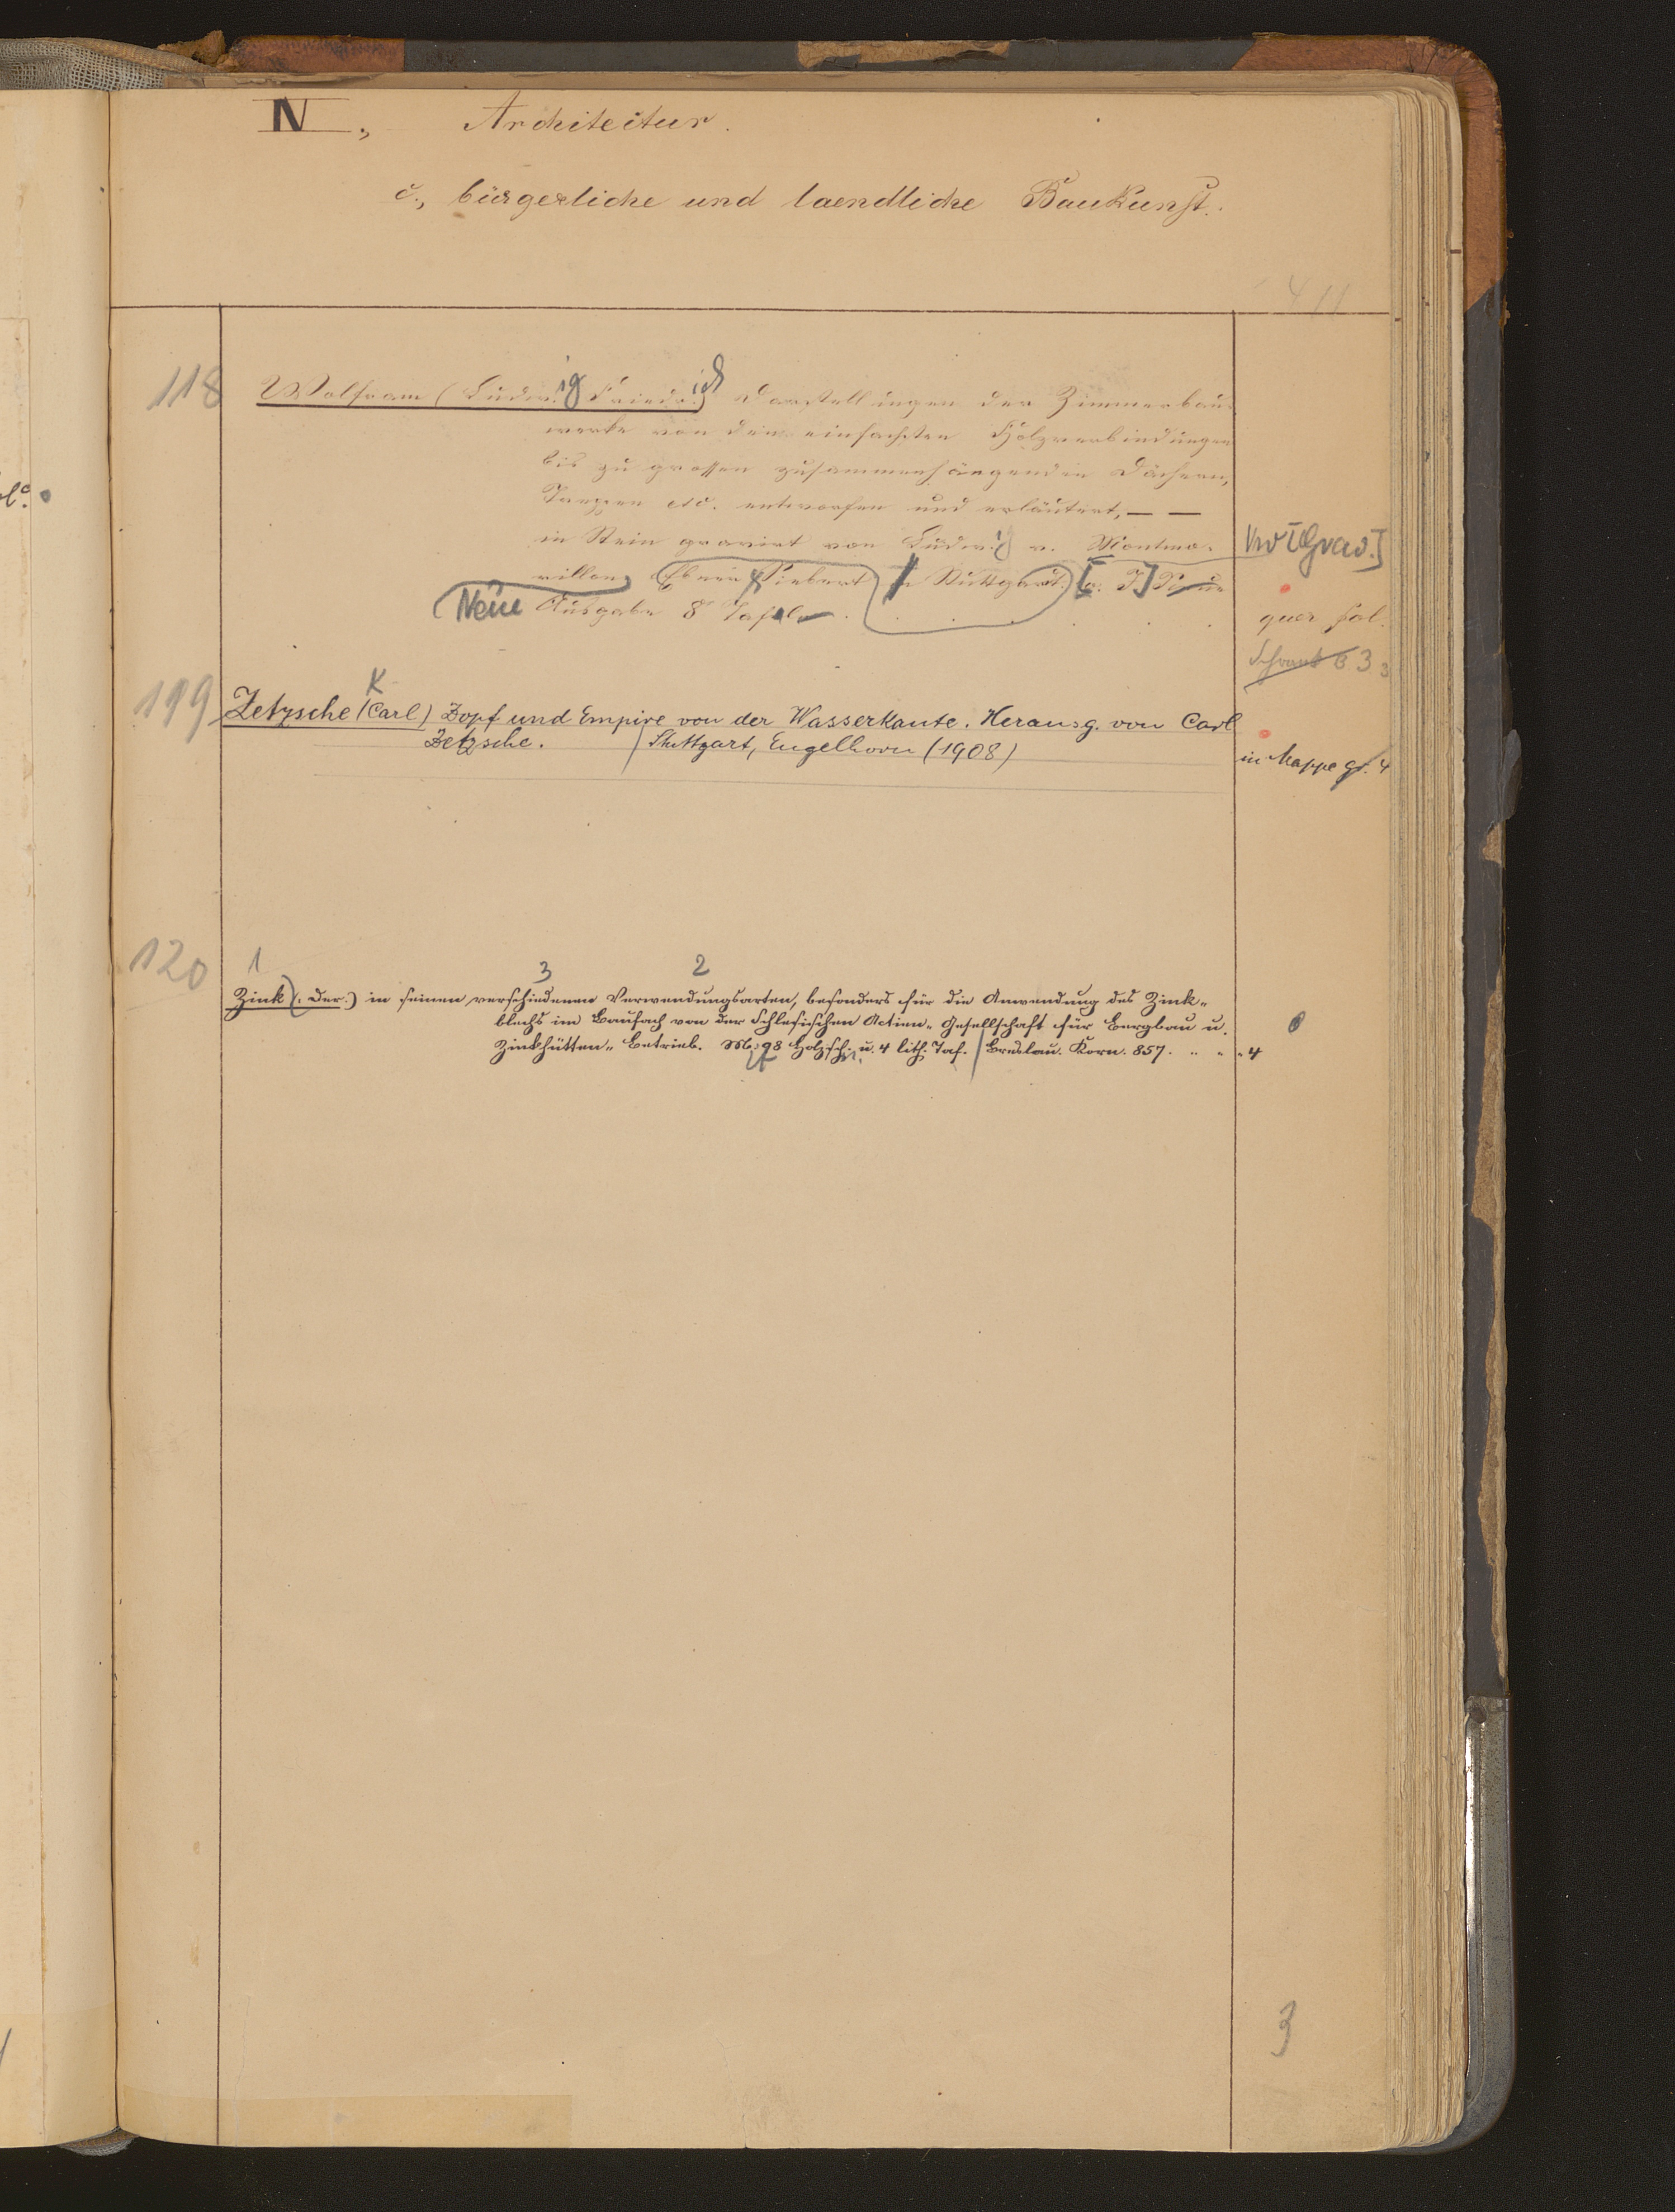 N, Architectur.
c., bürgerliche und laendliche Baukunst.
411
118 Wolfram (Ludwig Friedrich) Darstellungen der Zimmerbau-
werke von den einfachsten Holzverbindungen
bis zu grossen zusammenhängenden Dächern,
Treppen etc. entworfen und erläutert, — —
in Stein gravirt von Ludwig v. Montmo-
rillon, Ebner & Siebert in Stuttgart. [o. J.]
Neue Ausgabe 8 Tafeln
quer fol.
Schrank B 3
119 Zetzsche K (Carl) Zopf und Empire von der Wasserkante. Herausg. von Carl
Zetzsche. / Stuttgart, Engelhorn (1908)
in Mappe gr. 4
120 1 3 2
Zink (: Der :) in seinen verschiedenen Verwendungsarten, besonders für die Anwendung des Zink-
blechs im Baufach von der Schlesischen Actien-Gesellschaft für Bergbau u.
Zinkhütten-Betrieb. M. 98 Holzsch. u. 4 lith. Taf. / Breslau. Korn. 857. " " " 4
3